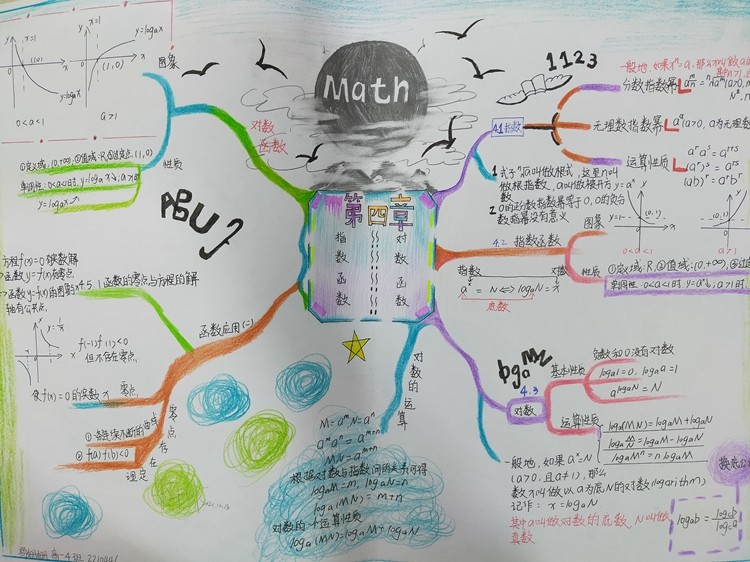 Math
第四章
指数函数
对数函数
对数函数
图象
x=1
y
y=logax
(1,0)
0<a<1
a>1
性质
①定义域:(0,+∞),②值域:R,③过定点(1,0)
单调性:0<a<1时,y=logax↓,a>1时
y=logax↗
1123
4.1指数
一般地,如果xⁿ=a,那么x叫做a
分数指数幂
无理数指数幂
运算性质
aʳaˢ=aʳ⁺ˢ
(aʳ)ˢ=aʳˢ
(ab)ʳ=aʳbʳ
1 式子ⁿ√a叫做根式,这里n叫
做根指数,a叫做被开方
数
2 0的正分数指数幂等于0,0的负分
数指幂没有意义
4.2 指数函数
图象
(0,1)
0<a<1
a>1
性质
①定义域:R,②值域:(0,+∞)
单调性:0<a<1时,y=aˣ↓,a>1时
指数
对数
aˣ=N⇔logaN=x
底数
方程f(x)=0有实数解
函数y=f(x)有零点
函数y=f(x)的图象与x
轴有公共点
4.5.1函数的零点与方程的解
函数应用(二)
f(-1)·f(1)<0
但不存在零点
使f(x)=0的实数x
零点
①
②f(a)f(b)<0
零点存在定理
对数的运算
M=aᵐ N=aⁿ
aᵐaⁿ=aᵐ⁺ⁿ
MN=aᵐ⁺ⁿ
根据对数与指数间的关系可得
logaM=m, logaN=n
loga(MN)=m+n
对数的一个运算性质
loga(MN)=logaM+logaN
4.3
对数
基本性质
负数和0没有对数
loga1=0, logaa=1
a^logaN=N
运算性质
loga(MN)=logaM+logaN
loga M/N=logaM-logaN
logaMⁿ=nlogaM
一般地,如果aˣ=N
(a>0,且a≠1),那么
数x叫做以a为底N的对数(logarithm)
记作: x=logaN
其中a叫做对数的底数,N叫做
真数
换底公
logab=logcb/logca
高一4班